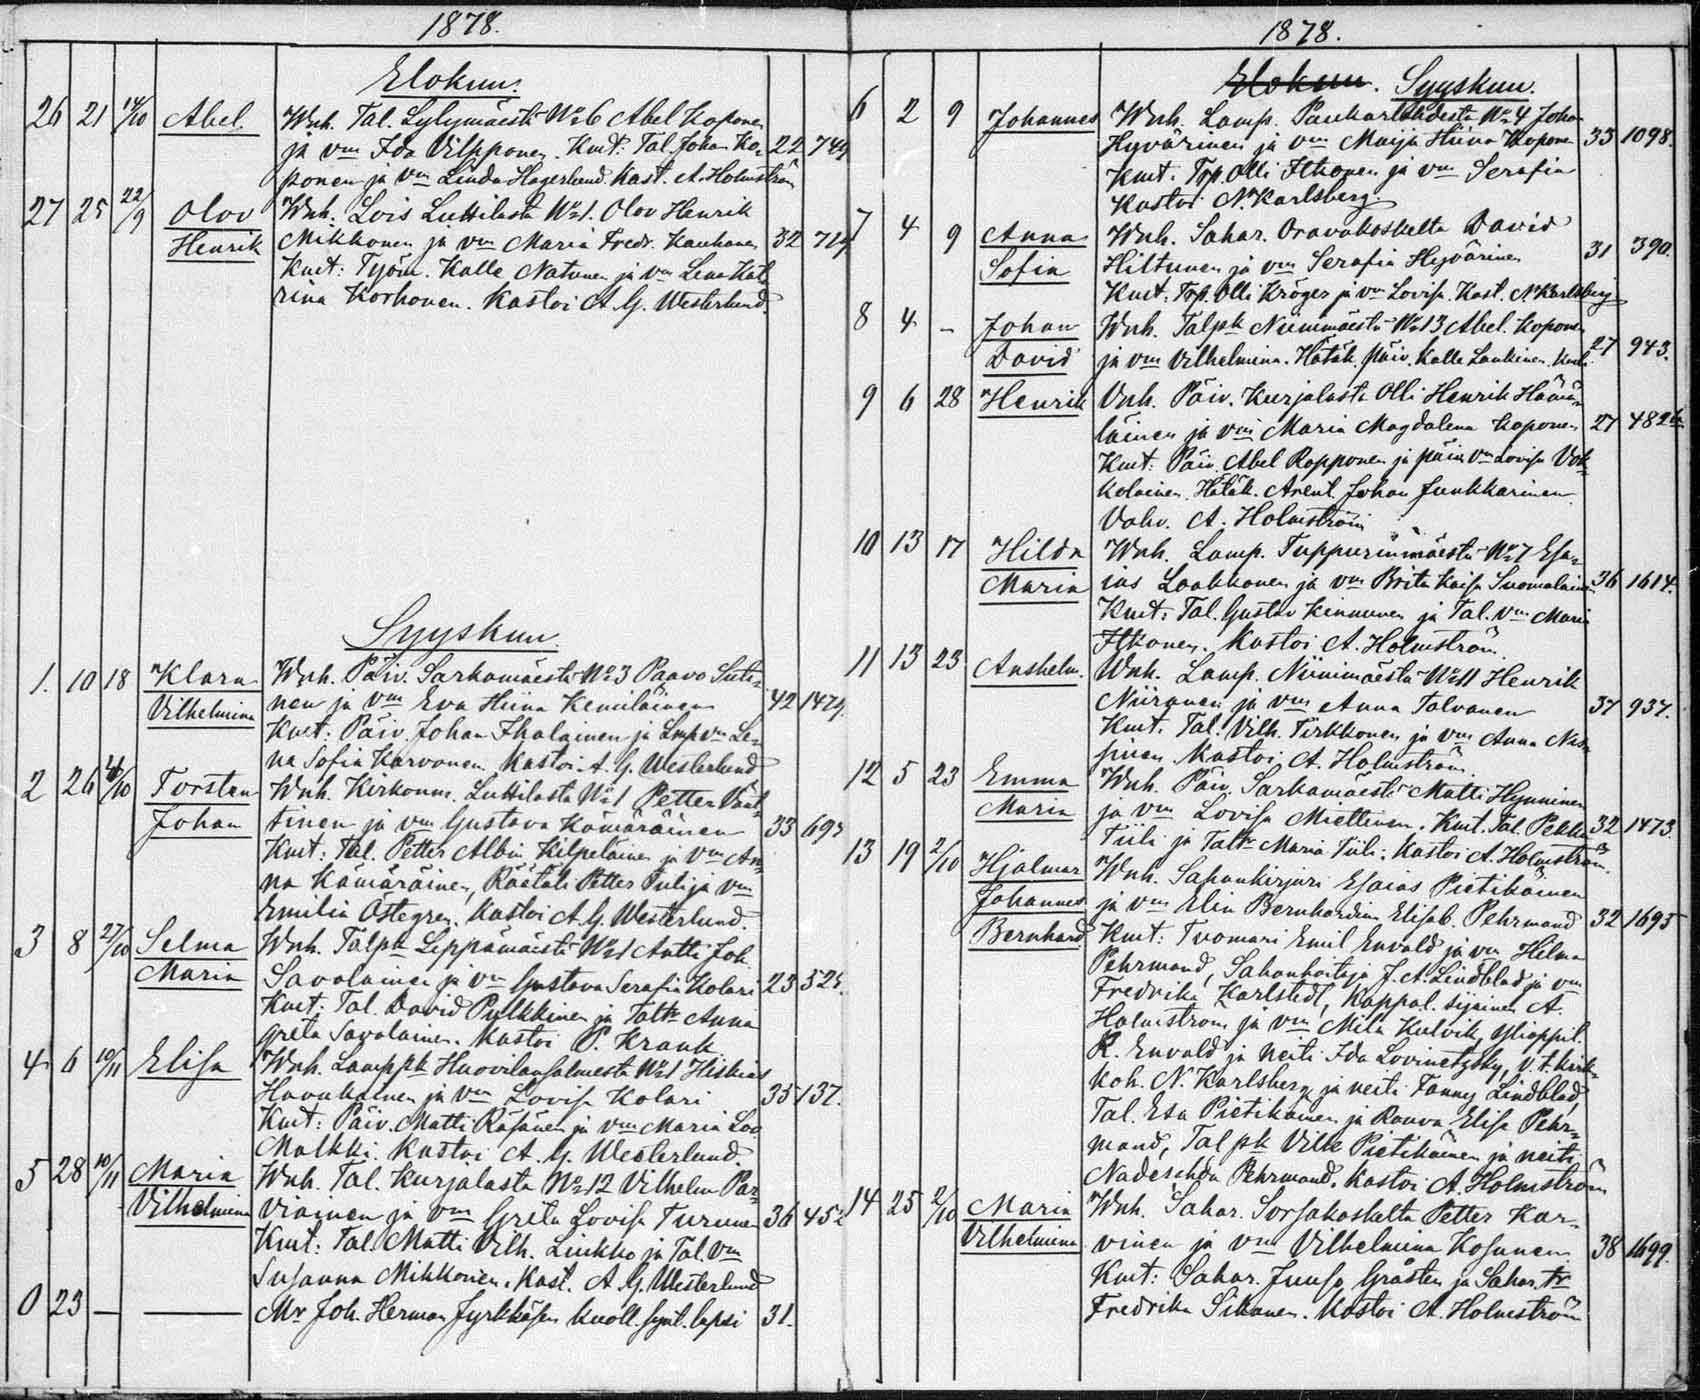 1878.
Elokuu.
26 21 14/10 Abel Wnh. Tal. Lylymäestä No 6 Abel Koponen
ja vm Ida Vilpponen. Kmt: Tal. Johan Ko- 22 749
ponen ja vm Linda Hagerlund. Kast. A. Holmström
27 25 22/9 Olov Wnh. Lois Luttilasta No 1. Olov Henrik
Henrik Mikkonen ja vm Maria Fredr. Kauhanen 32 719
Kmt: Työm. Kalle Natunen ja vm Lena Kat-
rina Korhonen. Kastoi A. G. Westerlund.
Syyskuu.
1. 10 18 Klara Wnh. Päiv. Sarkamäestä No 3 Paavo Suti-
Vilhelmina nen ja vm Eva Hiina Kemiläinen 42 1479.
Kmt: Päiv. Johan Ihalainen ja Lmp vm Le-
na Sofia Karvonen. Kastoi A. G. Westerlund
2 26 /10 Torsten Wnh. Kirkonm. Luttilasta No 1 Petter Vänt-
Johan tinen ja vm Gustava Kämäräinen 33 697
Kmt: Tal. Petter Albin Kilpeläinen ja vm An-
na Kämäräinen, Räätäli Petter Tuli ja vm
Emilia Östegren. Kastoi A. G. Westerlund.
3 8 27/10 Selma Wnh. Talpk Leppämäestä No 1 Antti Joh.
Maria Savolainen ja vm Gustava Serafia Kolari 23 525.
Kmt: Tal. David Pulkkinen ja Taltr Anna
Greta Savolainen. Kastoi P. Krank
4 6 10/11 Elisa Wnh. Lamppk Huovilansalmesta No 1 Hiskias
Havukainen ja vm Lovisa Kolari 35 137.
Kmt: Päiv. Matti Räsänen ja vm Maria Loo
Malkki. Kastoi A. G. Westerlund.
5 28 10/11 Maria Wnh. Tal. Kurjalasta No 12 Vilhelm Par-
Vilhelmina viainen ja vm Greta Lovisa Turunen 36 452
Kmt: Tal. Matti Vilh. Linkko ja Tal. vm
Susanna Mikkonen. Kast. A. G. Westerlund
0 23 — — Mr Joh. Herman Jyrkkäsen kuoll. synt. lapsi 31.
1878.
Elokuu. Syyskuu.
6 2 9 Johannes Wnh. Lamp. Paukarlahdesta No 4 Johan
Hyvärinen ja vm Maija Hiina Koponen 33 1098.
Kmt. Trp. Olli Itkonen ja vm Serafia
Kastoi N. Karlsberg
7 4 9 Anna Wnh. Sahar. Oravakoskelta David
Sofia Hiltunen ja vm Serafia Hyvärinen 31 390.
Kmt: Trp. Olli Kröger ja vm Lovisa. Kast. N. Karlsberg
8 4 - Johan Wnh. Talpk Niinimäestä No 13 Abel Koponen
David ja vm Vilhelmina. Hätäk. päiv. Kalle Laukkinen. 27 943.
9 6 28 Henrik Wnh. Päiv. Kurjalasta Olli Henrik Hämä-
läinen ja vm Maria Magdalena Koponen 27 482
Kmt: Päiv. Abel Ropponen ja päiv vm Lovisa Vok-
kolainen. Hätäk. Arent. Johan Junkkarinen
Vahv. A. Holmström
10 13 17 Hilda Wnh. Lamp. Tuppurinmäestä No 7 Esa-
Maria ias Laakkonen ja vm Brita Kaisa Suomalainen 36 1614.
Kmt: Tal. Gustav Kinnunen ja Tal. vm Maria
Itkonen. Kastoi A. Holmström.
11 13 23 Anshelm. Wnh. Lamp. Niinimäestä No 11 Henrik
Niiranen ja vm Anna Talvanen 37 937.
Kmt. Tal. Vilh. Tirkkonen ja vm Anna
Kastoi A. Holmström.
12 5 23 Emma Wnh. Päiv. Sarkamäestä Matti Hynninen
Maria ja vm Lovisa Miettinen. Kmt. Tal. Pekka 32 1473.
Tiili ja Taltr Maria Tiili. Kastoi A. Holmström.
13 19 2/10 Hjalmar Wnh. Sahankirjuri Esaias Pietikäinen
Johannes ja vm Elin Bernhardina Elisab. Pehrmand 32 1695
Bernhard Kmt: Tuomari Emil Envald ja vm Hilma
Pehrmand, Sahanhoitaja J. A. Lindblad ja vm
Fredrika Karlstedt, Kappal. sijainen A.
Holmström ja vm Mila Kulvik, yliappil.
R. Envald ja neiti Ida Lovinetzsky, v.t. kirk-
koh. N. Karlsberg ja neiti Fanny Lindblad,
Tal. Esa Pietikäinen ja Rouva Elisa Pehr-
mand, Talpk Vilh Pietikäinen ja neiti
Nadeschda Pehrmand. Kastoi A. Holmström
14 25 2/10 Maria Wnh. Sahar. Sorsakoskelta Petter Kar-
Vilhelmina vinen ja vm Vilhelmina Kosunen 38 1699.
Kmt: Sahar. Juuso Gråsten ja Sahar. tr
Fredrika Sikanen. Kastoi A. Holmström